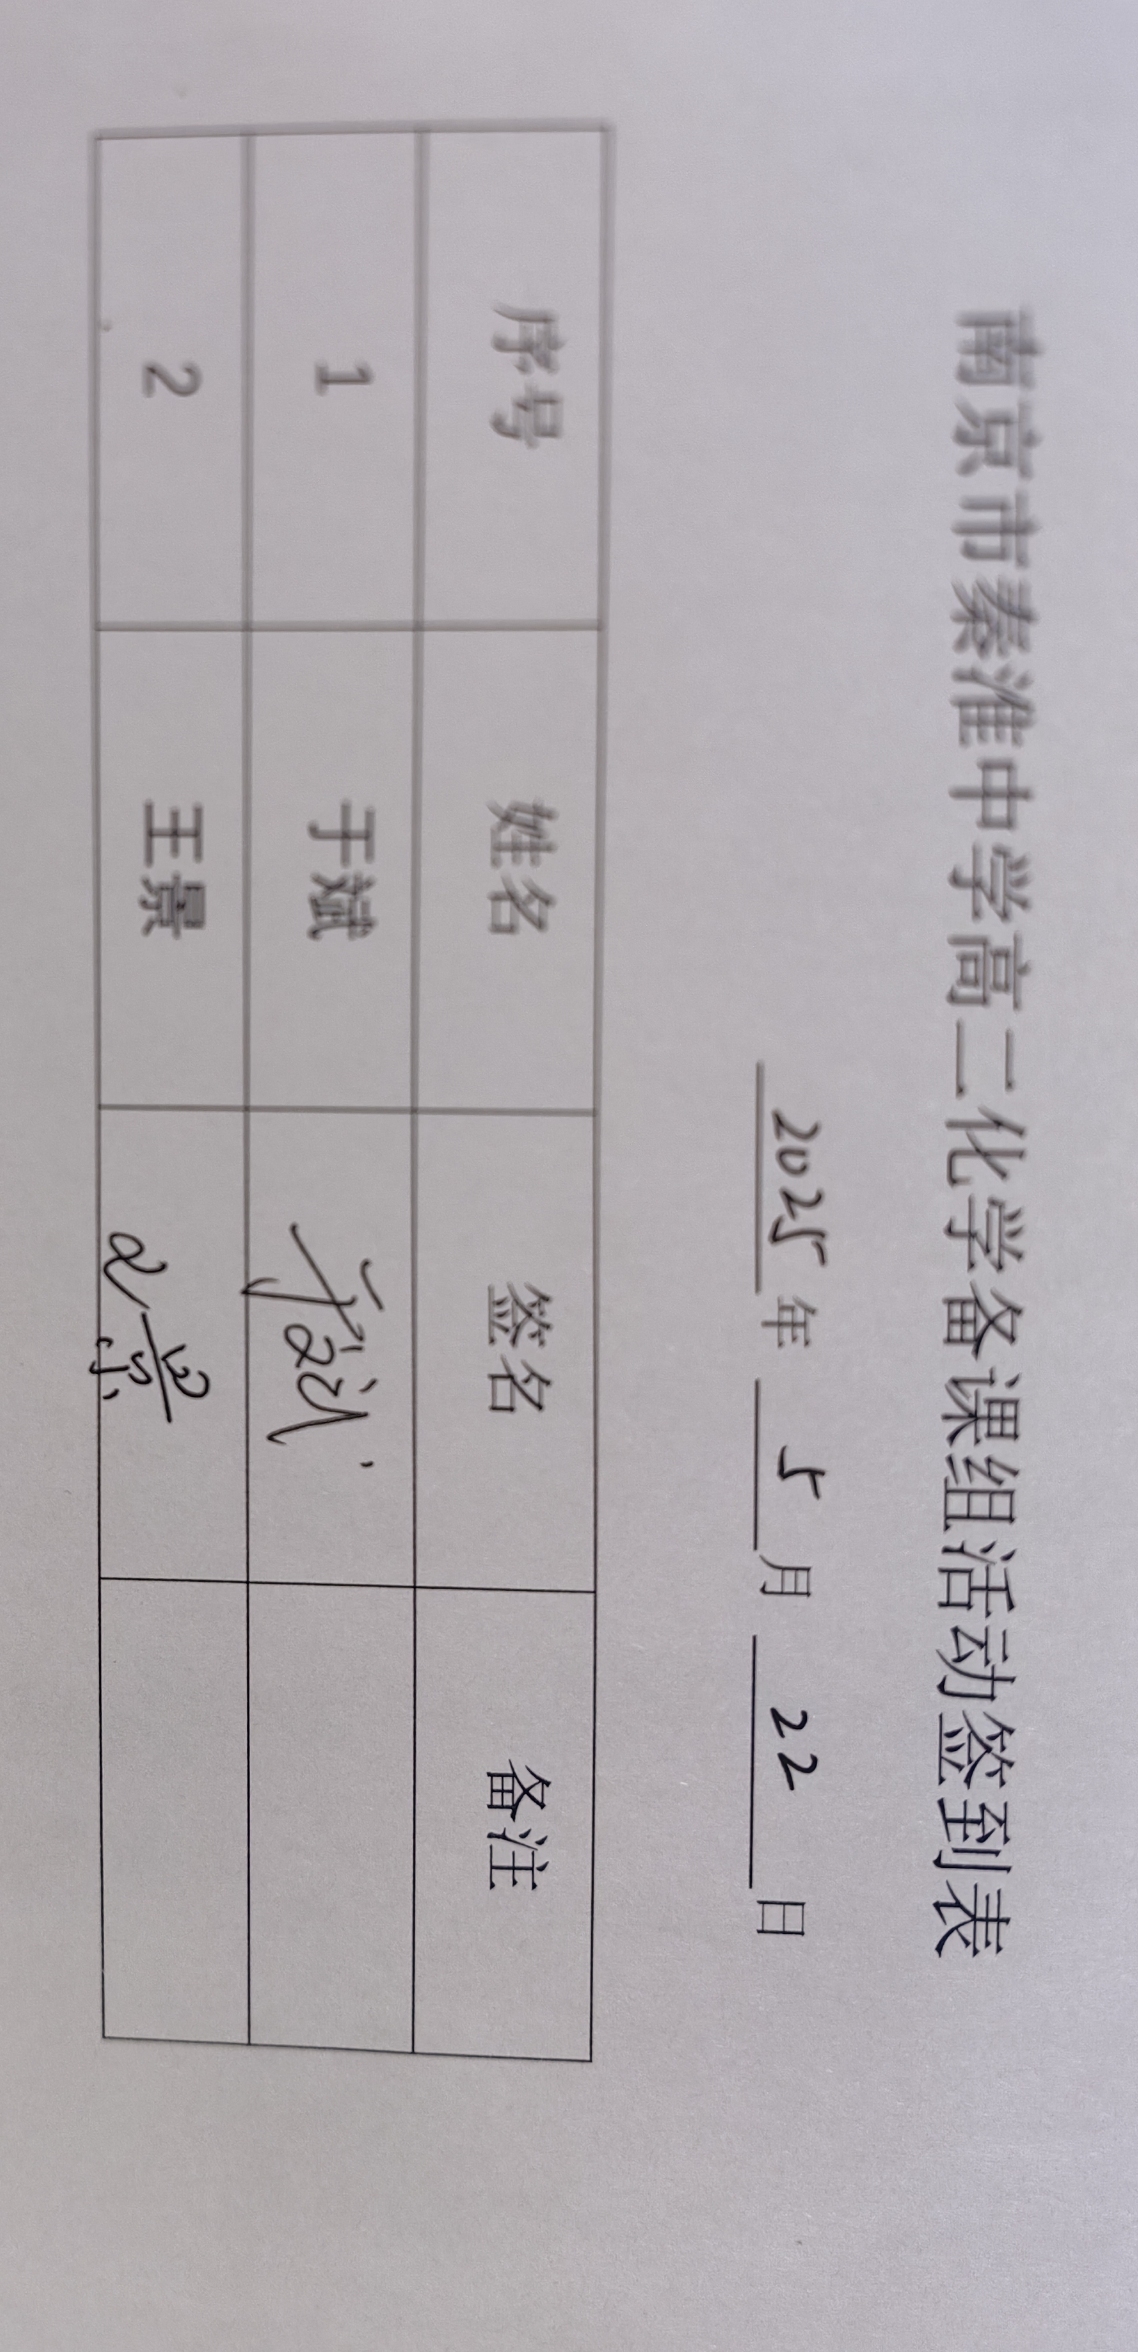 南京市秦淮中学高二化学备课组活动签到表
2025年 5月 22日
序号 姓名 签名 备注
1 于斌 于斌
2 王景 王景